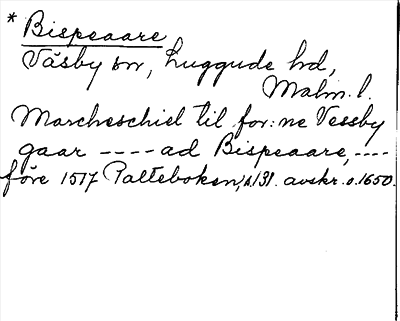 * Bispeaare
Väsby sn, Luggude hd,
Malm. l.
Marcheschiel til for:ne Vessby
gaar ---- ad Bispeaare, ----
före 1517 Palteboken, s.131. avskr. o.1650.